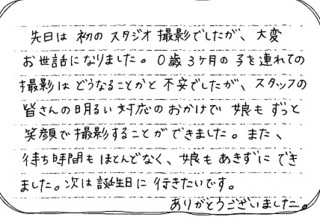 先日は 初の スタジオ 撮影でしたが、大変
お世話になりました。0歳3ヶ月の子を連れての
撮影は どうなることかと 不安でしたが、スタッフの
皆さんの明るい対応のおかげで 娘も ずっと
笑顔で撮影することができました。また、
待ち時間も ほとんどなく、娘も あきずに でき
ました。次は 誕生日に 行きたいです。
ありがとうございましたー。